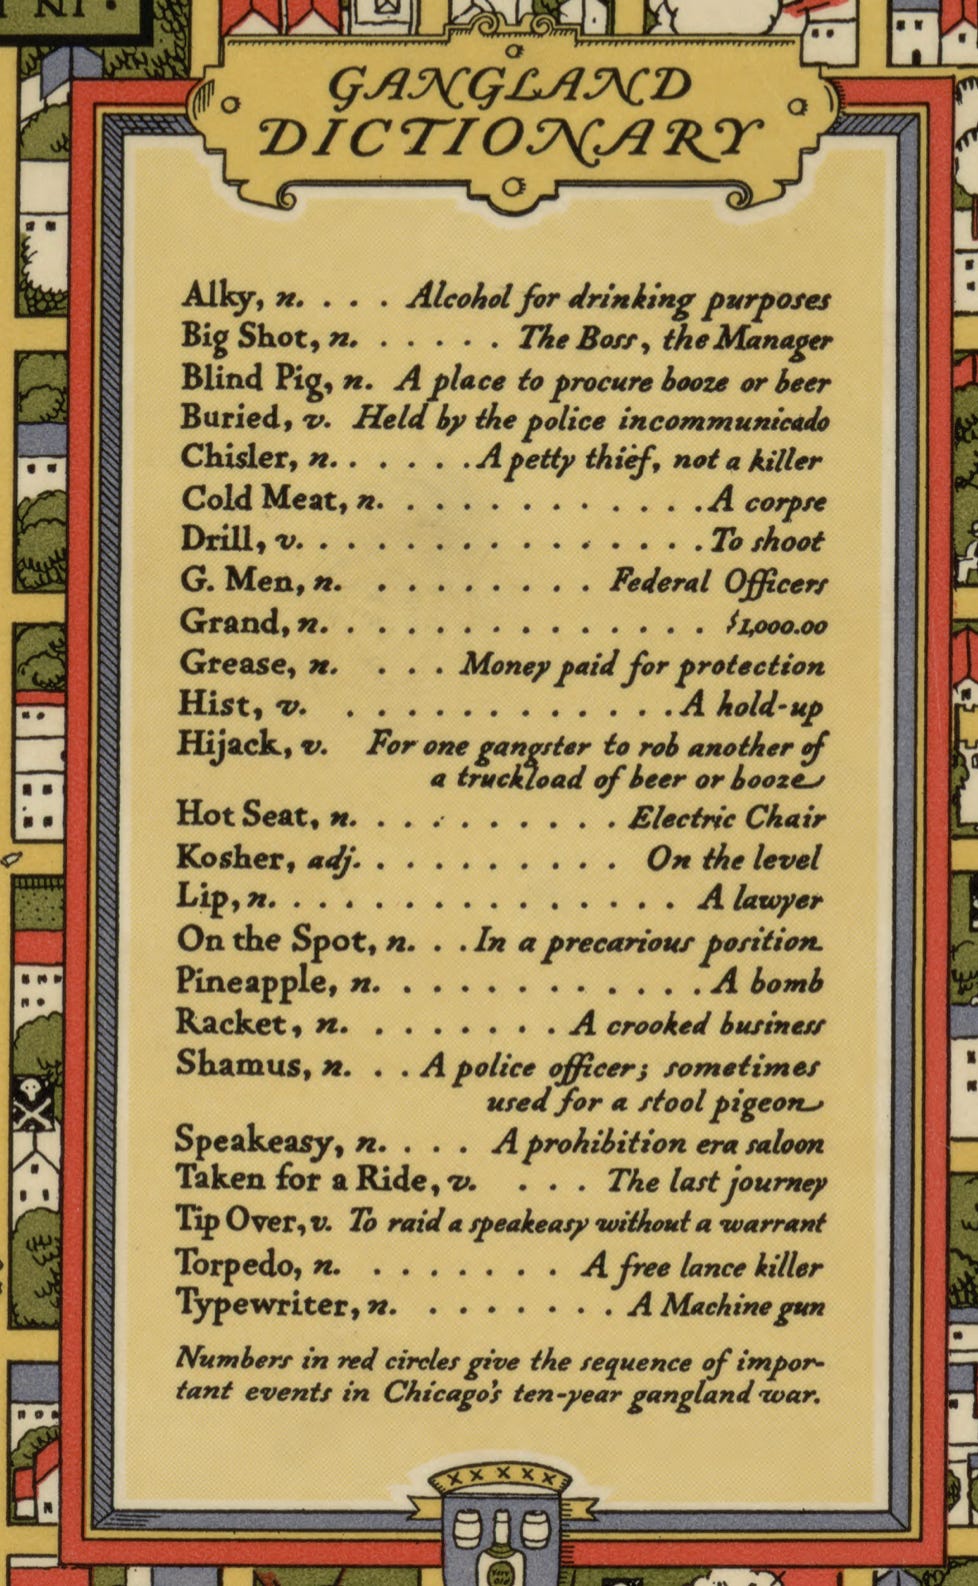 GANGLAND
DICTIONARY
Alky, n. . . . Alcohol for drinking purposes
Big Shot, n. . . . . . The Boss, the Manager
Blind Pig, n. A place to procure booze or beer
Buried, v. Held by the police incommunicado
Chisler, n. . . . . . . A petty thief, not a killer
Cold Meat, n. . . . . . . . . . . . . A corpse
Drill, v. . . . . . . . . . . . . . . . . To shoot
G. Men, n. . . . . . . . . Federal Officers
Grand, n. . . . . . . . . . . . . . . $1,000.00
Grease, n. . . . Money paid for protection
Hist, v. . . . . . . . . . . . . . A hold-up
Hijack, v. For one gangster to rob another of
a truckload of beer or booze
Hot Seat, n. . . . . . . . . . Electric Chair
Kosher, adj. . . . . . . . . . On the level
Lip, n. . . . . . . . . . . . . . . . A lawyer
On the Spot, n. . . In a precarious position.
Pineapple, n. . . . . . . . . . . . A bomb
Racket, n. . . . . . . . A crooked business
Shamus, n. . . A police officer; sometimes
used for a stool pigeon
Speakeasy, n. . . . . A prohibition era saloon
Taken for a Ride, v. . . . The last journey
Tip Over, v. To raid a speakeasy without a warrant
Torpedo, n. . . . . . . . A free lance killer
Typewriter, n. . . . . . . . A Machine gun
Numbers in red circles give the sequence of impor-
tant events in Chicago's ten-year gangland war.
XXXXX
Very
Old